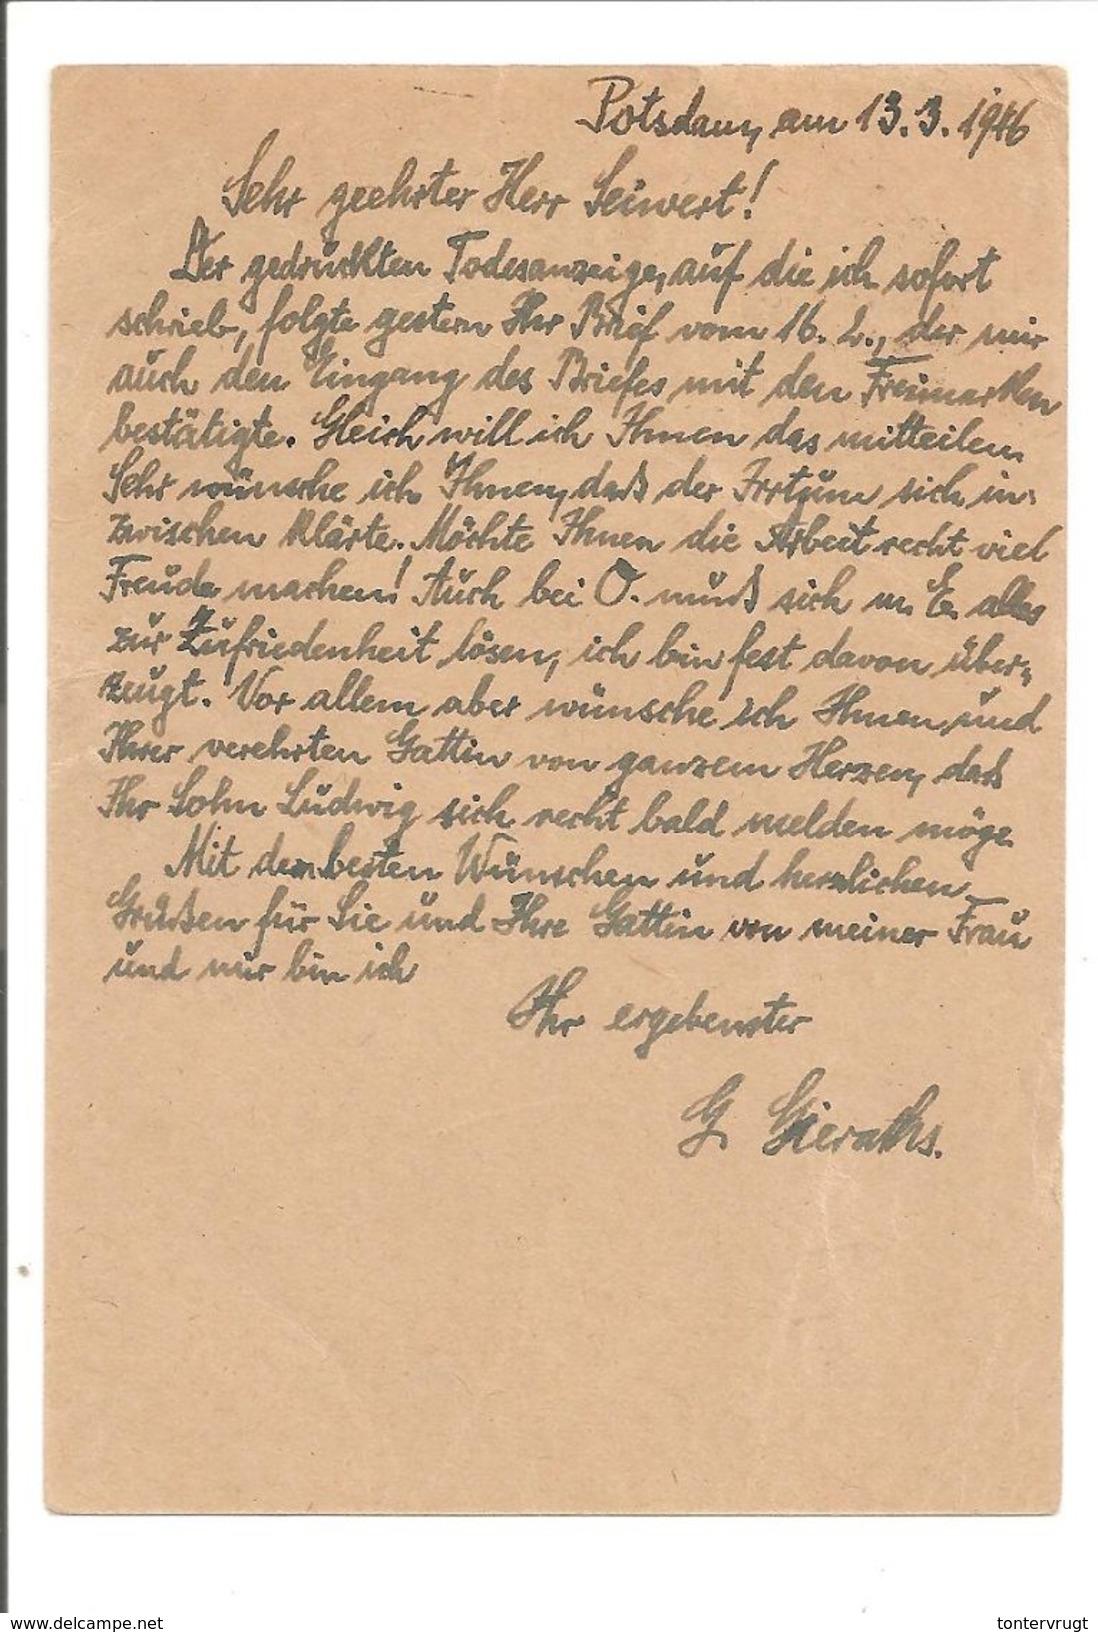 Potsdam, am 13.3.1946
Sehr geehrter Herr Seiwert!
Der gedruckten Todesanzeige, auf die ich sofort
schrieb, folgte gestern Ihr Brief vom 16. 2., der mir
auch den Eingang des Briefes mit den Freimarken
bestätigte. Gleich will ich Ihnen das mitteilen.
Sehr wünsche ich Ihnen, daß der Irrtum sich in-
zwischen klärte. Möchte Ihnen die Arbeit recht viel
Freude machen! Auch bei O. muß sich m. E. alles
zur Zufriedenheit lösen, ich bin fest davon über-
zeugt. Vor allem aber wünsche ich Ihnen und
Ihrer verehrten Gattin von ganzem Herzen, daß
Ihr Sohn Ludwig sich recht bald melden möge.
Mit den besten Wünschen und herzlichen
Grüßen für Sie und Ihre Gattin von meiner Frau
und mir bin ich
Ihr ergebenster
G. Gieraths.
www.delcampe.net
tontervrugt